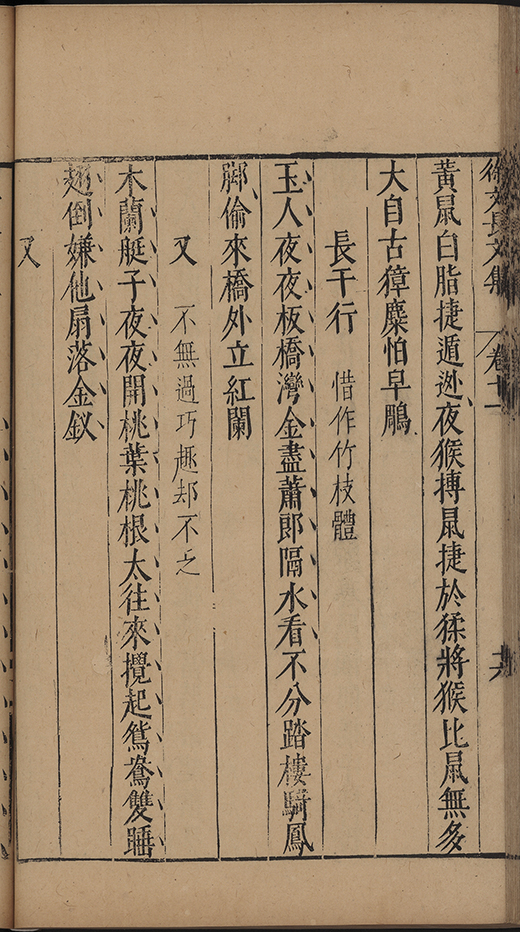 徐文長文集 卷十一 十六
黃鼠白脂捷遁迯夜猴摶鼠捷於猱將猴比鼠無多
大自古獐麋怕早鵰
長干行 借作竹枝體
玉人夜夜板橋灣金盡蕭郎隔水看不分踏樓騎鳳
腳偷來橋外立紅闌
又 不無過巧趣却不乏
木蘭艇子夜夜開桃葉桃根太往來攪起鴛鴦雙睡
趐倒嫌他扇落金釵
又